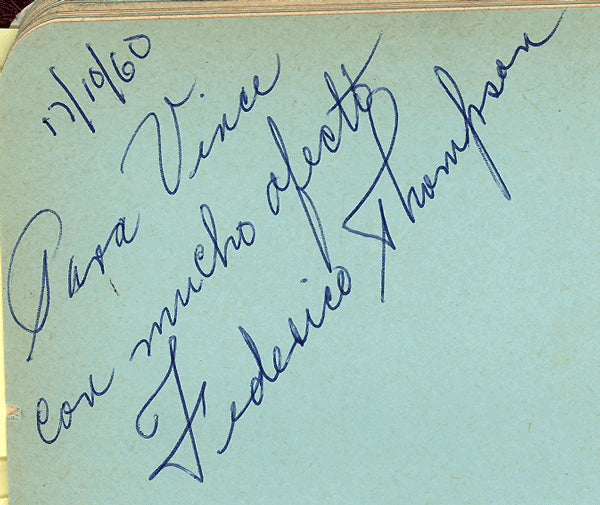 17/10/60
Para Vince
con mucho afecto
Federico Thompson